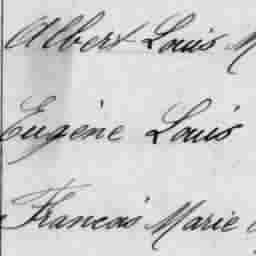 Albert Louis M
Eugène Louis
Francois Marie